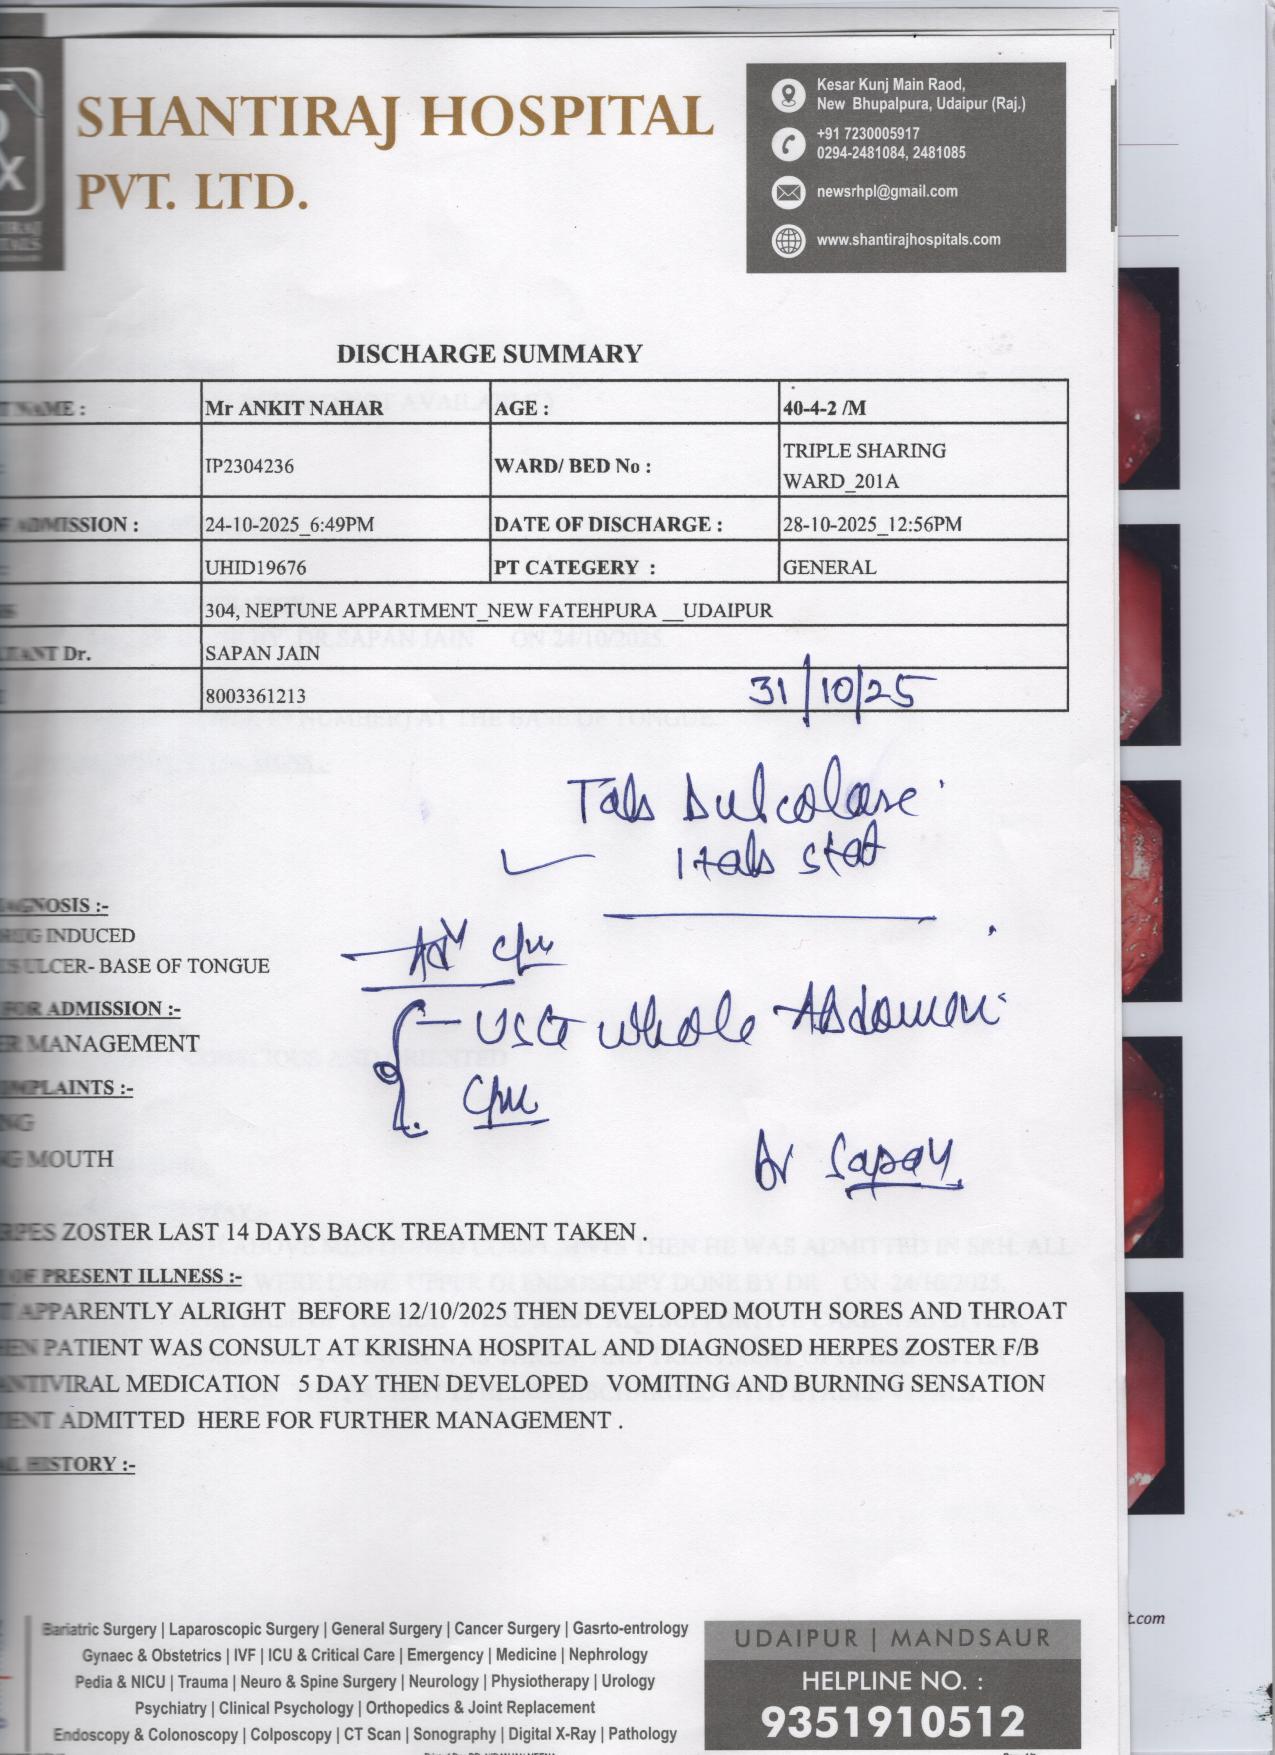 SHANTIRAJ HOSPITAL
PVT. LTD.
Kesar Kunj Main Raod,
New Bhupalpura, Udaipur (Raj.)
+91 7230005917
0294-2481084, 2481085
newsrhpl@gmail.com
www.shantirajhospitals.com
DISCHARGE SUMMARY
NAME : Mr ANKIT NAHAR AGE : 40-4-2 /M
IP2304236 WARD/ BED No : TRIPLE SHARING
WARD_201A
ADMISSION : 24-10-2025_6:49PM DATE OF DISCHARGE : 28-10-2025_12:56PM
UHID19676 PT CATEGERY : GENERAL
304, NEPTUNE APPARTMENT_NEW FATEHPURA __UDAIPUR
Dr. SAPAN JAIN
8003361213
31/10/25
Tab Dulcolax
1 tab stat
GNOSIS :-
INDUCED
ULCER- BASE OF TONGUE
Adv
FOR ADMISSION :-
USG whole Abdomen
MANAGEMENT
MPLAINTS :-
NG
MOUTH
Dr Sapan
RPES ZOSTER LAST 14 DAYS BACK TREATMENT TAKEN .
OF PRESENT ILLNESS :-
APPARENTLY ALRIGHT BEFORE 12/10/2025 THEN DEVELOPED MOUTH SORES AND THROAT
EN PATIENT WAS CONSULT AT KRISHNA HOSPITAL AND DIAGNOSED HERPES ZOSTER F/B
ANTIVIRAL MEDICATION 5 DAY THEN DEVELOPED VOMITING AND BURNING SENSATION
ENT ADMITTED HERE FOR FURTHER MANAGEMENT .
HISTORY :-
Bariatric Surgery | Laparoscopic Surgery | General Surgery | Cancer Surgery | Gasrto-entrology
Gynaec & Obstetrics | IVF | ICU & Critical Care | Emergency | Medicine | Nephrology
Pedia & NICU | Trauma | Neuro & Spine Surgery | Neurology | Physiotherapy | Urology
Psychiatry | Clinical Psychology | Orthopedics & Joint Replacement
Endoscopy & Colonoscopy | Colposcopy | CT Scan | Sonography | Digital X-Ray | Pathology
UDAIPUR | MANDSAUR
HELPLINE NO. :
9351910512
t.com